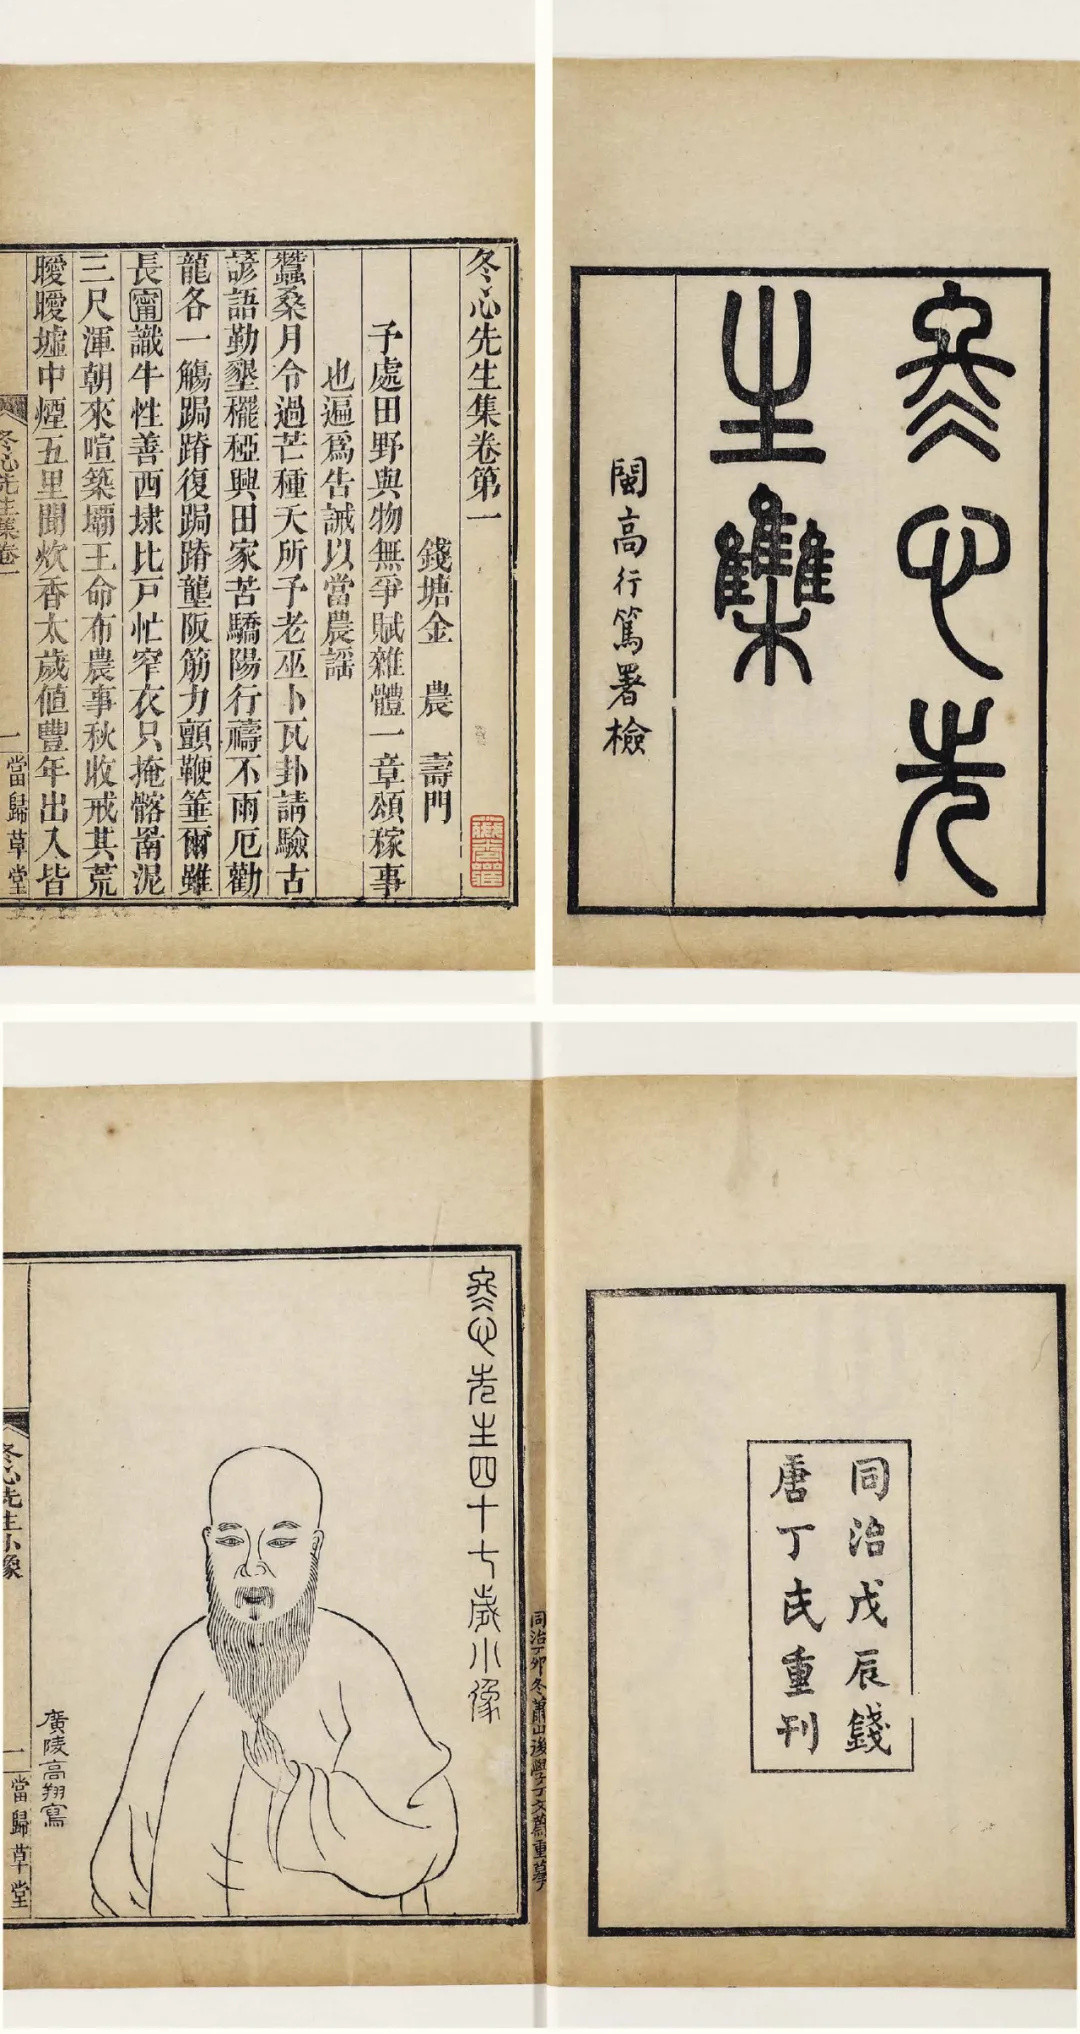 冬心先
生集
閩高行篤署檢
冬心先生集卷第一
錢塘金　農　壽門
予處田野與物無爭賦雜體一章頌稼事
也遍爲告誡以當農謡
蠶桑月令過芒種天所予老巫卜瓦卦請驗古
諺語勤墾䆉稏興田家苦驕陽行禱不雨厄勸
龍各一觴跼蹐復跼蹐壟阪筋力顫鞭箠爾雖
長甯識牛性善西埭比戸忙窄衣只掩髂罱泥
三尺渾朝來喧築壩王命布農事秋收戒其荒
曖曖墟中煙五里聞炊香太歲値豐年出入皆
冬心先生集卷一
一
當歸草堂
同治戊辰錢
唐丁氏重刊
同治丁卯冬蕭山後學丁文蔚重摹
冬心先生四十七歲小像
廣陵高翔寫
冬心先生小像
一
當歸草堂